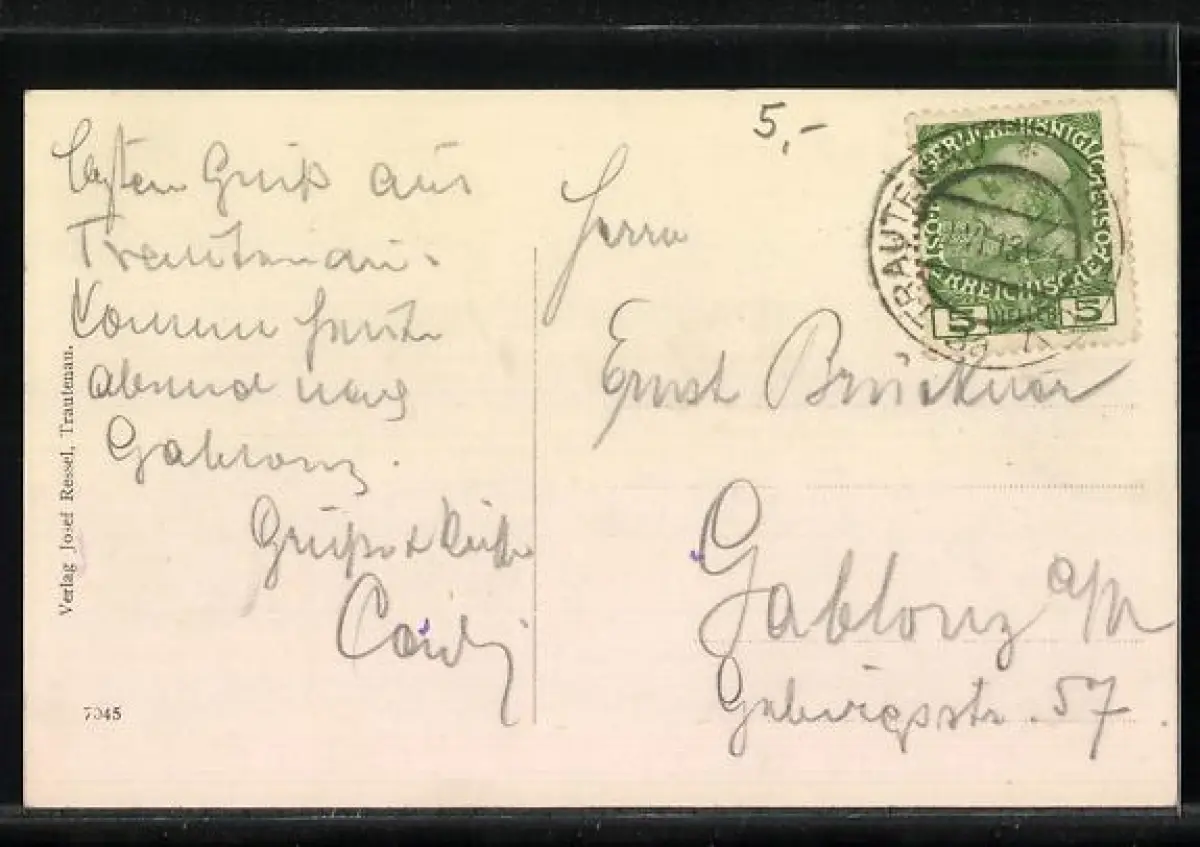 5,-
letzten Gruß aus
Trautenau.
Komme heute
abend nach
Gablonz.
Grüße & Küsse
Herrn
Ernst Brückner
Gablonz a/N
Gebirgsstr. 57.
TRAUTENAU
KAISERLICHE KÖNIGLICHE
ÖSTERREICHISCHE POST
5 HELLER 5
Verlag Josef Ressel, Trautenau.
7045